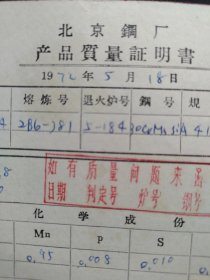 北京鋼厂
产品質量証明書
1972年5月18日
熔炼号 退火炉号 鋼号 規
2B6-781 5-184 30CrMnSiA 41
如有质量问题来函
日期 判定号 炉号 钢号
化学成份
Mn P S
0.95 0.008 0.010